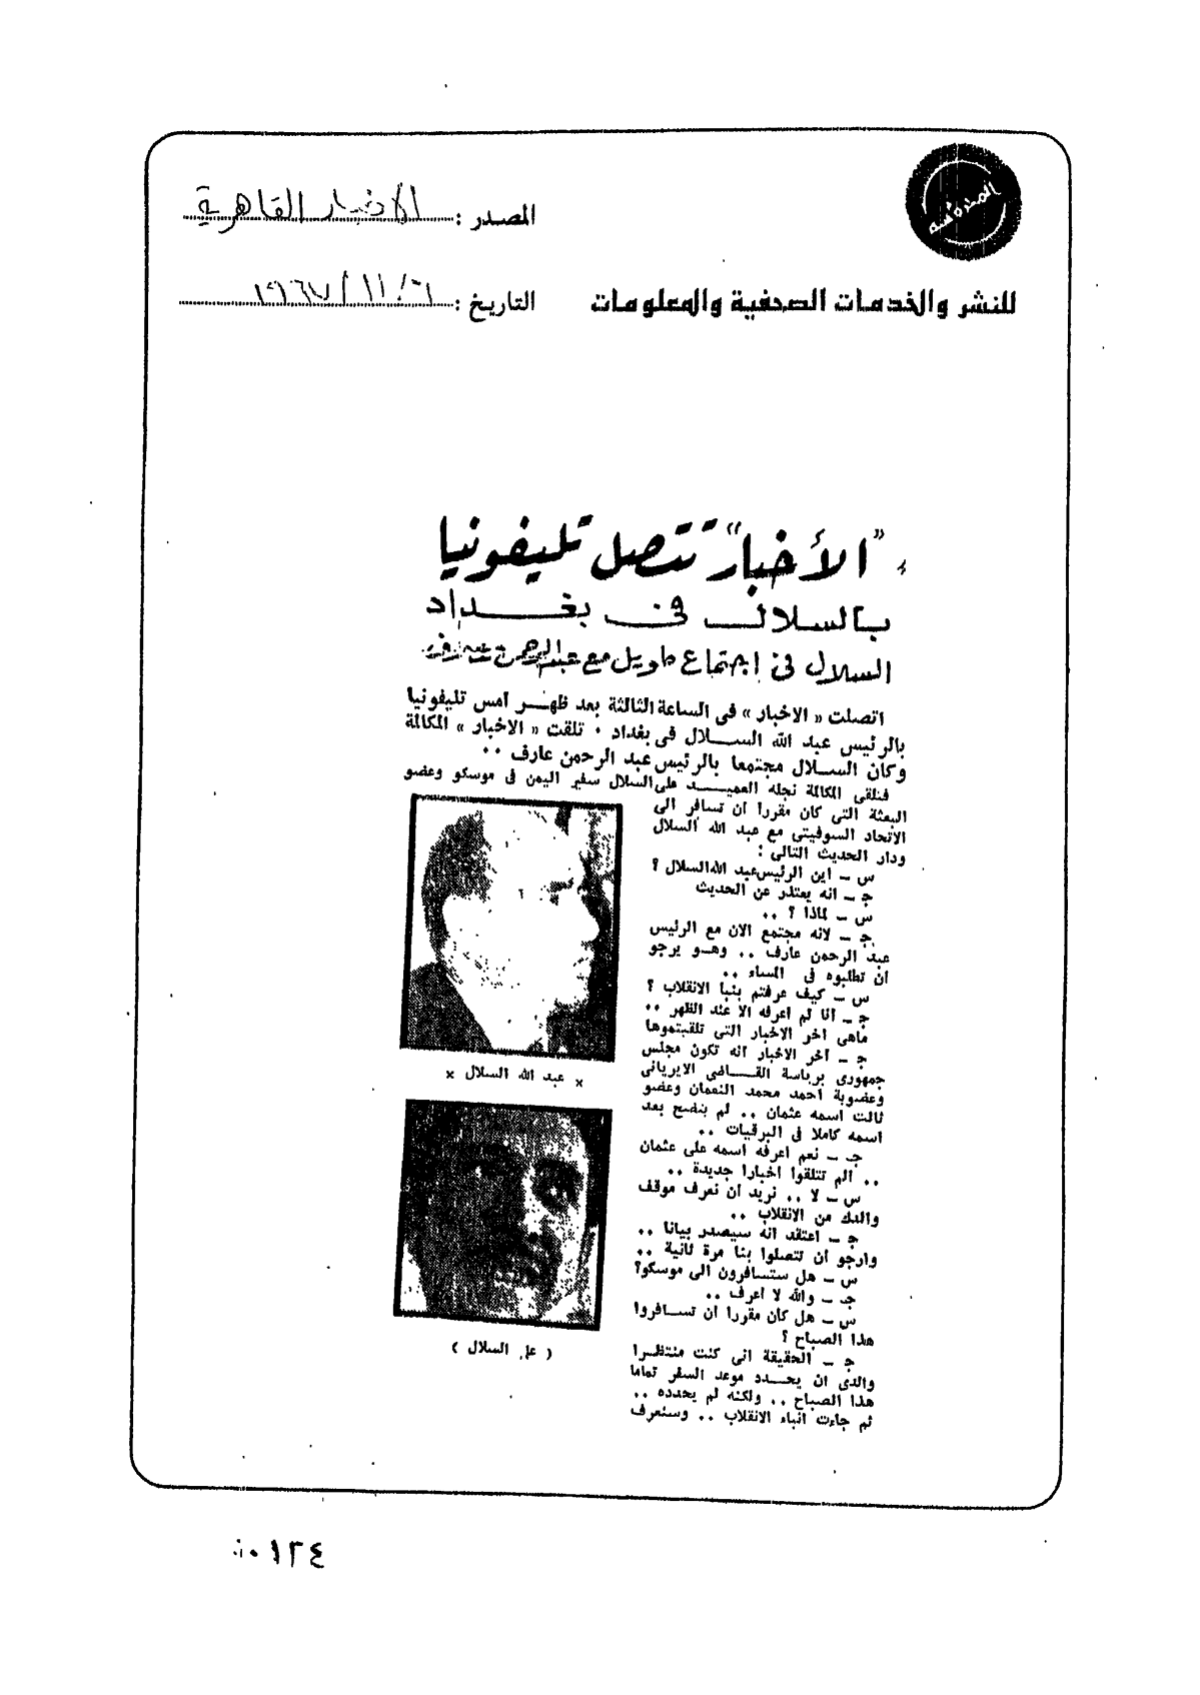 المصدر : الاخبار القاهرية
للنشر والخدمات الصحفية والمعلومات
التاريخ : ٦ / ١١ / ١٩٦٧
"الأخبار" تتصل تليفونيا
بالسلال فى بغداد
السلال فى إجتماع طويل مع عبد الرحمن عارف
اتصلت « الاخبار » فى الساعة الثالثة بعد ظهر امس تليفونيا
بالرئيس عبد الله السلال فى بغداد ٠ تلقت « الاخبار » المكالمة
وكان السلال مجتمعا بالرئيس عبد الرحمن عارف ٠٠
فتلقى المكالمة نجله العميد على السلال سفير اليمن فى موسكو وعضو
البعثة التى كان مقررا ان تسافر الى
الاتحاد السوفيتى مع عبد الله السلال
ودار الحديث التالى :
س ــ اين الرئيس عبد الله السلال ؟
جـ ــ انه يعتذر عن الحديث
س ــ لماذا ؟ ٠٠
جـ ــ لانه مجتمع الان مع الرئيس
عبد الرحمن عارف ٠٠ وهو يرجو
ان تطلبوه فى المساء ٠٠
س ــ كيف عرفتم بنبا الانقلاب ؟
جـ ــ انا لم اعرفه الا عند الظهر ٠٠
ماهى اخر الاخبار التى تلقيتموها
جـ ــ اخر الاخبار انه تكون مجلس
جمهورى برياسة القاضى الايريانى
وعضوية احمد محمد النعمان وعضو
ثالث اسمه عثمان ٠٠ لم يتضح بعد
اسمه كاملا فى البرقيات ٠٠
جـ ــ نعم اعرفه اسمه على عثمان
٠٠ الم تتلقوا اخبارا جديدة ٠٠
س ــ لا ٠٠ نريد ان نعرف موقف
والدك من الانقلاب ٠٠
جـ ــ اعتقد انه سيصدر بيانا ٠٠
وارجو ان تتصلوا بنا مرة ثانية ٠٠
س ــ هل ستسافرون الى موسكو؟
جـ ــ والله لا اعرف ٠٠
س ــ هل كان مقررا ان تسافروا
هذا الصباح ؟
جـ ــ الحقيقة انى كنت منتظرا
والدى ان يحدد موعد السفر تماما
هذا الصباح ٠٠ ولكنه لم يحدده ٠٠
ثم جاءت انباء الانقلاب ٠٠ وسنعرف
× عبد الله السلال ×
( على السلال )
٠١٢٤